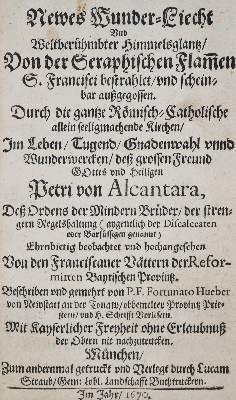 Newes Wunder-Liecht
Und
Weltberühmbter Himmelsglantz/
Von der Seraphischen Flam̃en
S. Francisci bestrahlet/vnd schein-
bar außgegossen.
Durch die gantze Römisch-Catholische
allein seeligmachende Kirchen/
Im Leben/ Tugend/ Gnadenwahl vnnd
Wunderwercken/ deß grossen Freund
GOttes vnd Heiligen
Petri von Alcantara,
Deß Ordens der Mindern Brüder/ der stren-
gern Regelshaltung (aygentlich der Discalceaten
oder Barfüssigen genannt)
Ehrnbietig beobachtet vnd hochangesehen
Von den Franciscaner Vättern der Refor-
mirten Bayrischen Provintz.
Beschriben vnd gemehrt von P. F. Fortunato Hueber
von Newstatt an der Tonaw/ obbemelter Provintz Prie-
stern/ vnd H. Schrifft
Mit Kayserlicher Freyheit ohne Erlaubnuß
der Obern nit nachzutrucken.
München/
Zum andernmal getruckt vnd Verlegt durch Lucam
Straub/ Gem: Löbl. Landschafft Buchtruckern.
Im Jahr/ 1670.